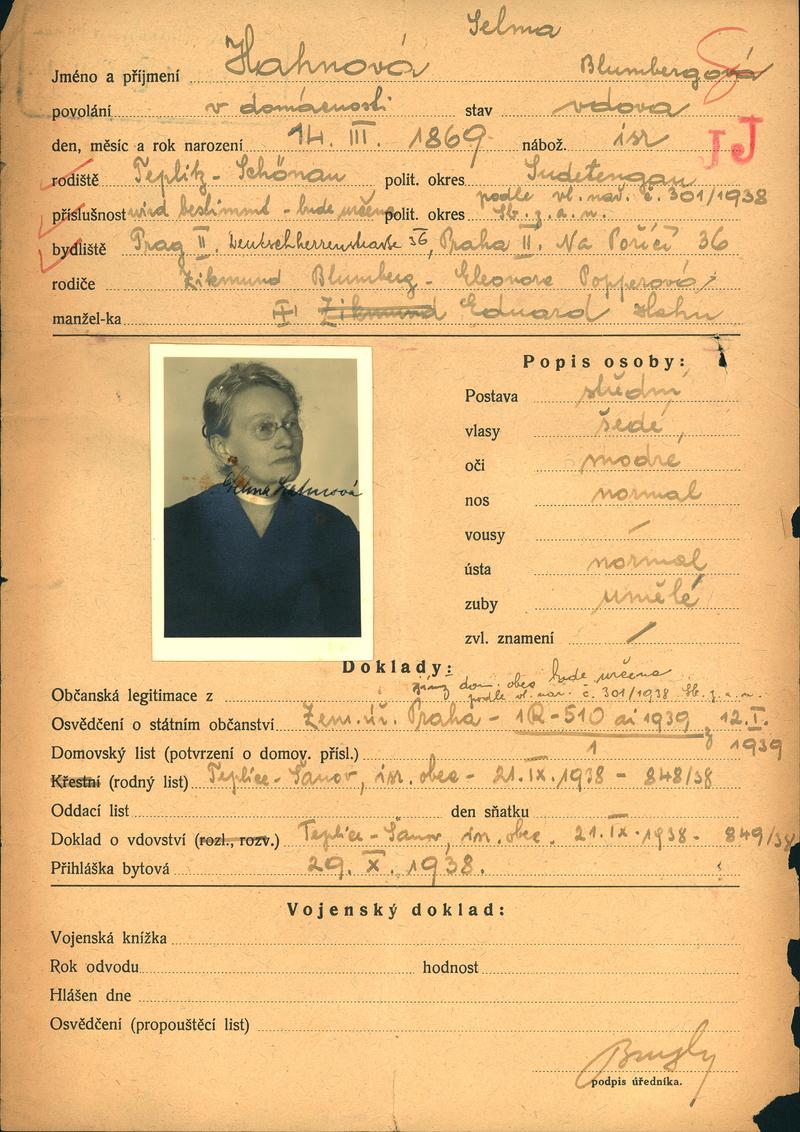 Selma
Jméno a příjmení Hahnová Blumbergová
povolání v domácnosti stav vdova
den, měsíc a rok narození 14. III. 1869 nábož. isr
JJ
rodiště Teplitz-Schönau polit. okres Sudetengau
podle vl. nař. č. 301/1938
příslušnost wird bestimmt - bude určena polit. okres Sb. z. a. n.
bydliště Prag II. Deutschherrenstrasse 36, Praha II. Na Poříčí 36
rodiče Zikmund Blumberg - Eleonora Popperová
manžel-ka Zikmund Eduard Hahn
Popis osoby:
Postava střední
vlasy šedé
oči modré
nos normal
vousy
ústa normal
zuby umělé
zvl. znamení
Selma Hahnová
Doklady:
dom. obec bude určena
Občanská legitimace z podle vl. nař. č. 301/1938 Sb. z. a. n.
Osvědčení o státním občanství Zem. úř. Praha - 1R-510 ai 1939 z 12. I.
Domovský list (potvrzení o domov. přísl.) 1 1939
Křestní (rodný list) Teplice-Šanov, isr. obec - 21. IX. 1938 - 848/38
Oddací list den sňatku
Doklad o vdovství (rozl., rozv.) Teplice-Šanov, isr. obec. 21. IX. 1938 - 849/38
Přihláška bytová 29. X. 1938.
Vojenský doklad:
Vojenská knížka
Rok odvodu hodnost
Hlášen dne
Osvědčení (propouštěcí list)
podpis úředníka.